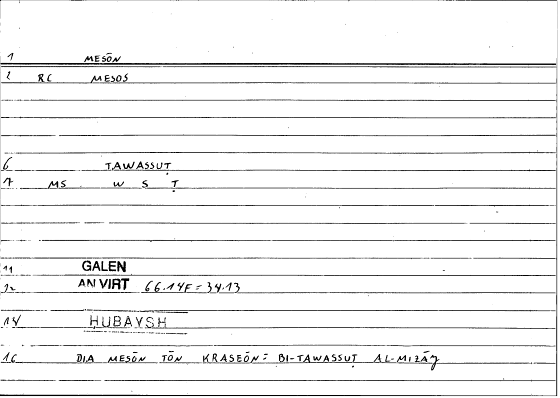 1 MESŌN
2 RC MESOS
6 TAWASSUṬ
7 MS W S Ṭ
11 GALEN
12 AN VIRT 66.14F = 34.13
14 HUBAYSH
16 DIA MESŌN TŌN KRASEŌN = BI-TAWASSUṬ AL-MIZĀǦ